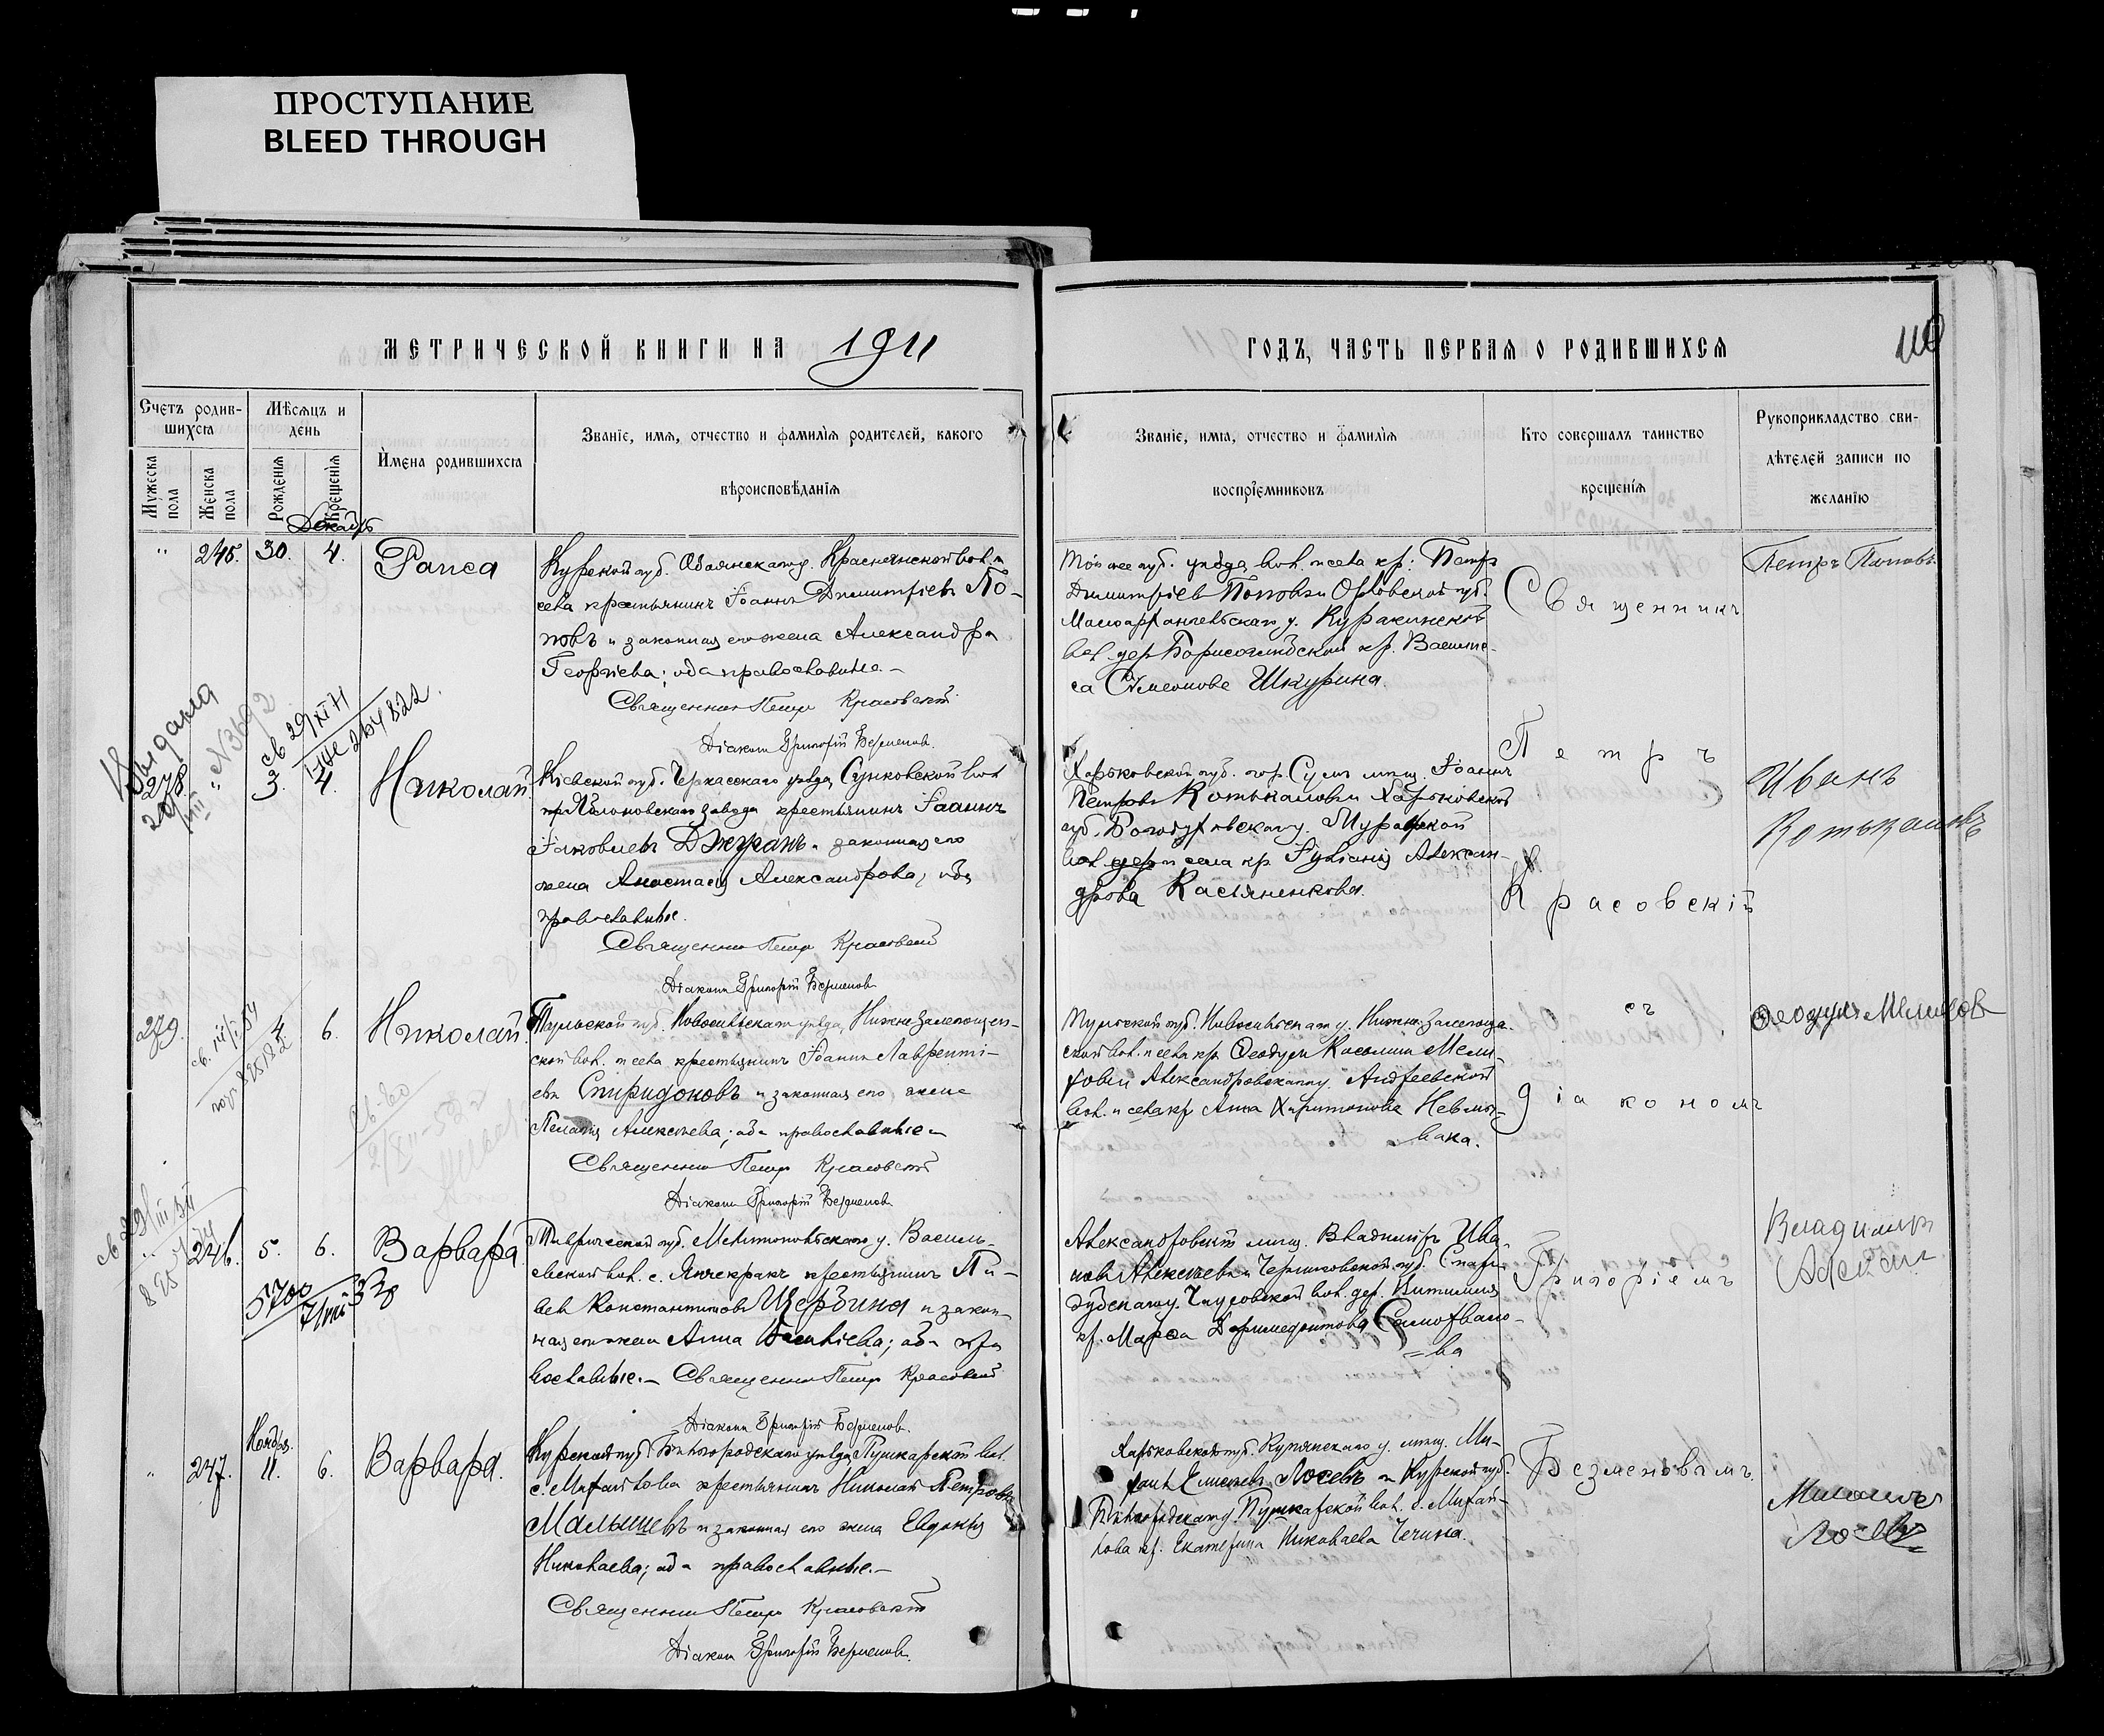 ПРОСТУПАНИЕ
BLEED THROUGH
МЕТРИЧЕСКОЙ КНИГИ НА 1911
ГОДЪ, ЧАСТЬ ПЕРВАЯ О РОДИВШИХСЯ
110
Счетъ родив-
шихся
Мѣсяцъ и
день
Мужеска
пола
Женска
пола
Рожденія
Крещенія
Имена родившихся
Званіе, имя, отчество и фамилія родителей, какого
вѣроисповѣданія
Званіе, имя, отчество и фамилія
воспріемниковъ
Кто совершалъ таинство
крещенія
Рукоприкладство сви-
дѣтелей записи по
желанію
Декабрь
" 245. 30. 4. Раиса
Курской губ. Обоянскаго у. Краснянской вол. и
села крестьянинъ Іоаннъ Димитріевъ По-
повъ и законная его жена Александра
Георгіева; оба православные.-
Священникъ Петръ Красовскій
Діаконъ Григорій Безменовъ.
Той же губ. уѣзда, вол. и села кр: Петръ
Димитріевъ Поповъ и Орловской губ.
Малоархангельскаго у. Куракинской
вол. дер. Борисоглѣбской кр. Васили-
са Симеонова Шкурина.
Петръ Поповъ.
Выдана
№ 3692
св 29/XI 71
278 " 3. 4. Николай
Кіевской губ. Черкасскаго уѣзда, Сунковской вол
крестьянинъ Іоаннъ
Іаковлевъ Джуранъ и законная его
жена Анастасія Александрова, оба
православные.
Священникъ Петръ Красовскій
Діаконъ Григорій Безменовъ
Харьковской губ. гор. Сумъ мѣщ. Іоаннъ
Петровъ Котькаловъ и Харьковской
губ. Богодуховскаго у. Мурафской
вол. и села кр Іуліанія Алексан-
дрова Касьяненкова.
Иванъ
Котькаловъ
279. 4 6. Николай
Тульской губ. Новосильскаго уѣзда, Нижне Залегощен-
ской вол. и села крестьянинъ Іоаннъ Лаврентi-
евъ Спиридоновъ и законная его жена
Пелагія Алексѣева; оба православные
Священникъ Петръ Красовскій
Діаконъ Григорій Безменовъ
Тульской губ. Новосильскаго у. Нижне Залегоще-
ской вол. и села кр. Ѳеодулъ
Александровскаго у. Андреевской
вол. и села кр Анна Харитонова Невлы-
вака.
" 246. 5. 6. Варвара
Таврической губ. Мелитопольскаго у. Василь-
евской вол. с. Янчекракъ крестьянинъ Па-
велъ Константиновъ Щербина и закон-
ная его жена Анна; оба пра
вославные.- Священникъ Петръ Красовскій
Діаконъ Григорій Безменовъ.
Александровскій мѣщ. Владиміръ Ива-
новъ Алексѣевъ и Черниговской губ. Старо-
дубскаго у. вол. дер.
кр. Марѳа Самохвало-
=ва
Владиміръ
Ноября.
" 247. 11. 6. Варвара.
Курской губ Бѣлгородскаго уѣзда, Пушкарской вол.
с. Михайлова крестьянинъ Николай Петровъ
Малышевъ и законная его жена Евдокія
Николаева; оба православные.-
Священникъ Петръ Красовскій
Діаконъ Григорій Безменовъ.
Харьковской губ. Купянскаго у. мѣщ. Ми-
хаилъ Лосевъ и Курской губ.
Бѣлгородскаго у. Пушкарской вол. с. Михай-
лова кр. Екатерина Николаева Чечина.
Священникъ
Петръ
Красовскій
съ
діакономъ
Григоріемъ
Безменовымъ.